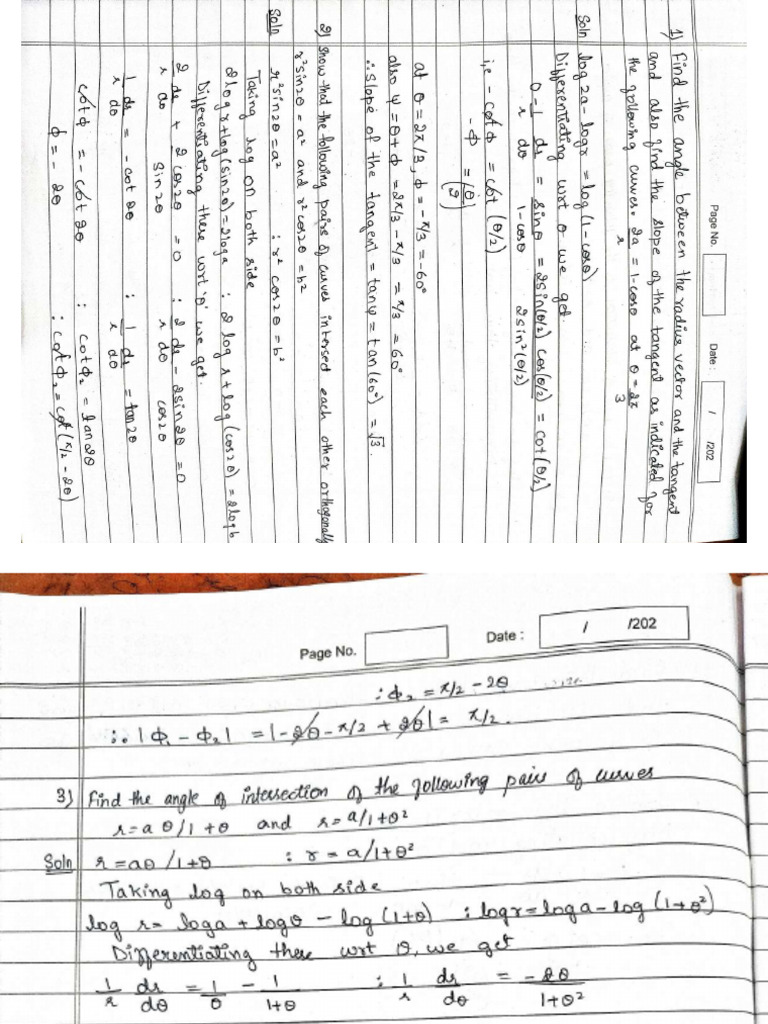 Page No.
Date : / /202
1) Find the angle between the radius vector and the tangent
and also find the slope of the tangent as indicated for
the following curves. 2a/r = 1-cosθ at θ = 2π/3
Soln log 2a - log r = log (1 - cosθ)
Differentiating wrt θ we get.
0 - 1/r dr/dθ = sinθ/1-cosθ = 2sin(θ/2) cos(θ/2)/2sin²(θ/2) = cot(θ/2)
i.e - cot ϕ = cot (θ/2)
-ϕ = (θ/2)
at θ = 2π/3, ϕ = -π/3 = -60°
also ψ = θ + ϕ = 2π/3 - π/3 = π/3 = 60°
∴ Slope of the tangent = tanψ = tan (60°) = √3.
2) Show that the following pairs of curves intersect each other orthogonally
r²sin2θ = a² and r²cos2θ = b²
Soln r²sin2θ = a² : r² cos2θ = b²
Taking log on both side
2 log r + log (sin2θ) = 2 log a : 2 log r + log (cos2θ) = 2 log b
Differentiating these wrt 'θ' we get.
2/r dr/dθ + 2cos2θ/sin2θ = 0 : 2/r dr/dθ - 2sin2θ/cos2θ = 0
1/r dr/dθ = - cot 2θ : 1/r dr/dθ = tan2θ
cot ϕ = - cot 2θ : cot ϕ₂ = tan 2θ
ϕ = - 2θ : cot ϕ₂ = cot (π/2 - 2θ)
Page No.
Date : / /202
: ϕ₂ = π/2 - 2θ
∴ |ϕ₁ - ϕ₂| = |-2θ - π/2 + 2θ| = π/2.
3) Find the angle of intersection of the following pairs of curves
r = a θ/1+θ and r = a/1+θ²
Soln r = aθ/1+θ : r = a/1+θ²
Taking log on both side
log r = log a + log θ - log (1+θ) : log r = log a - log (1+θ²)
Differentiating these wrt θ, we get
1/r dr/dθ = 1/θ - 1/1+θ : 1/r dr/dθ = -2θ/1+θ²